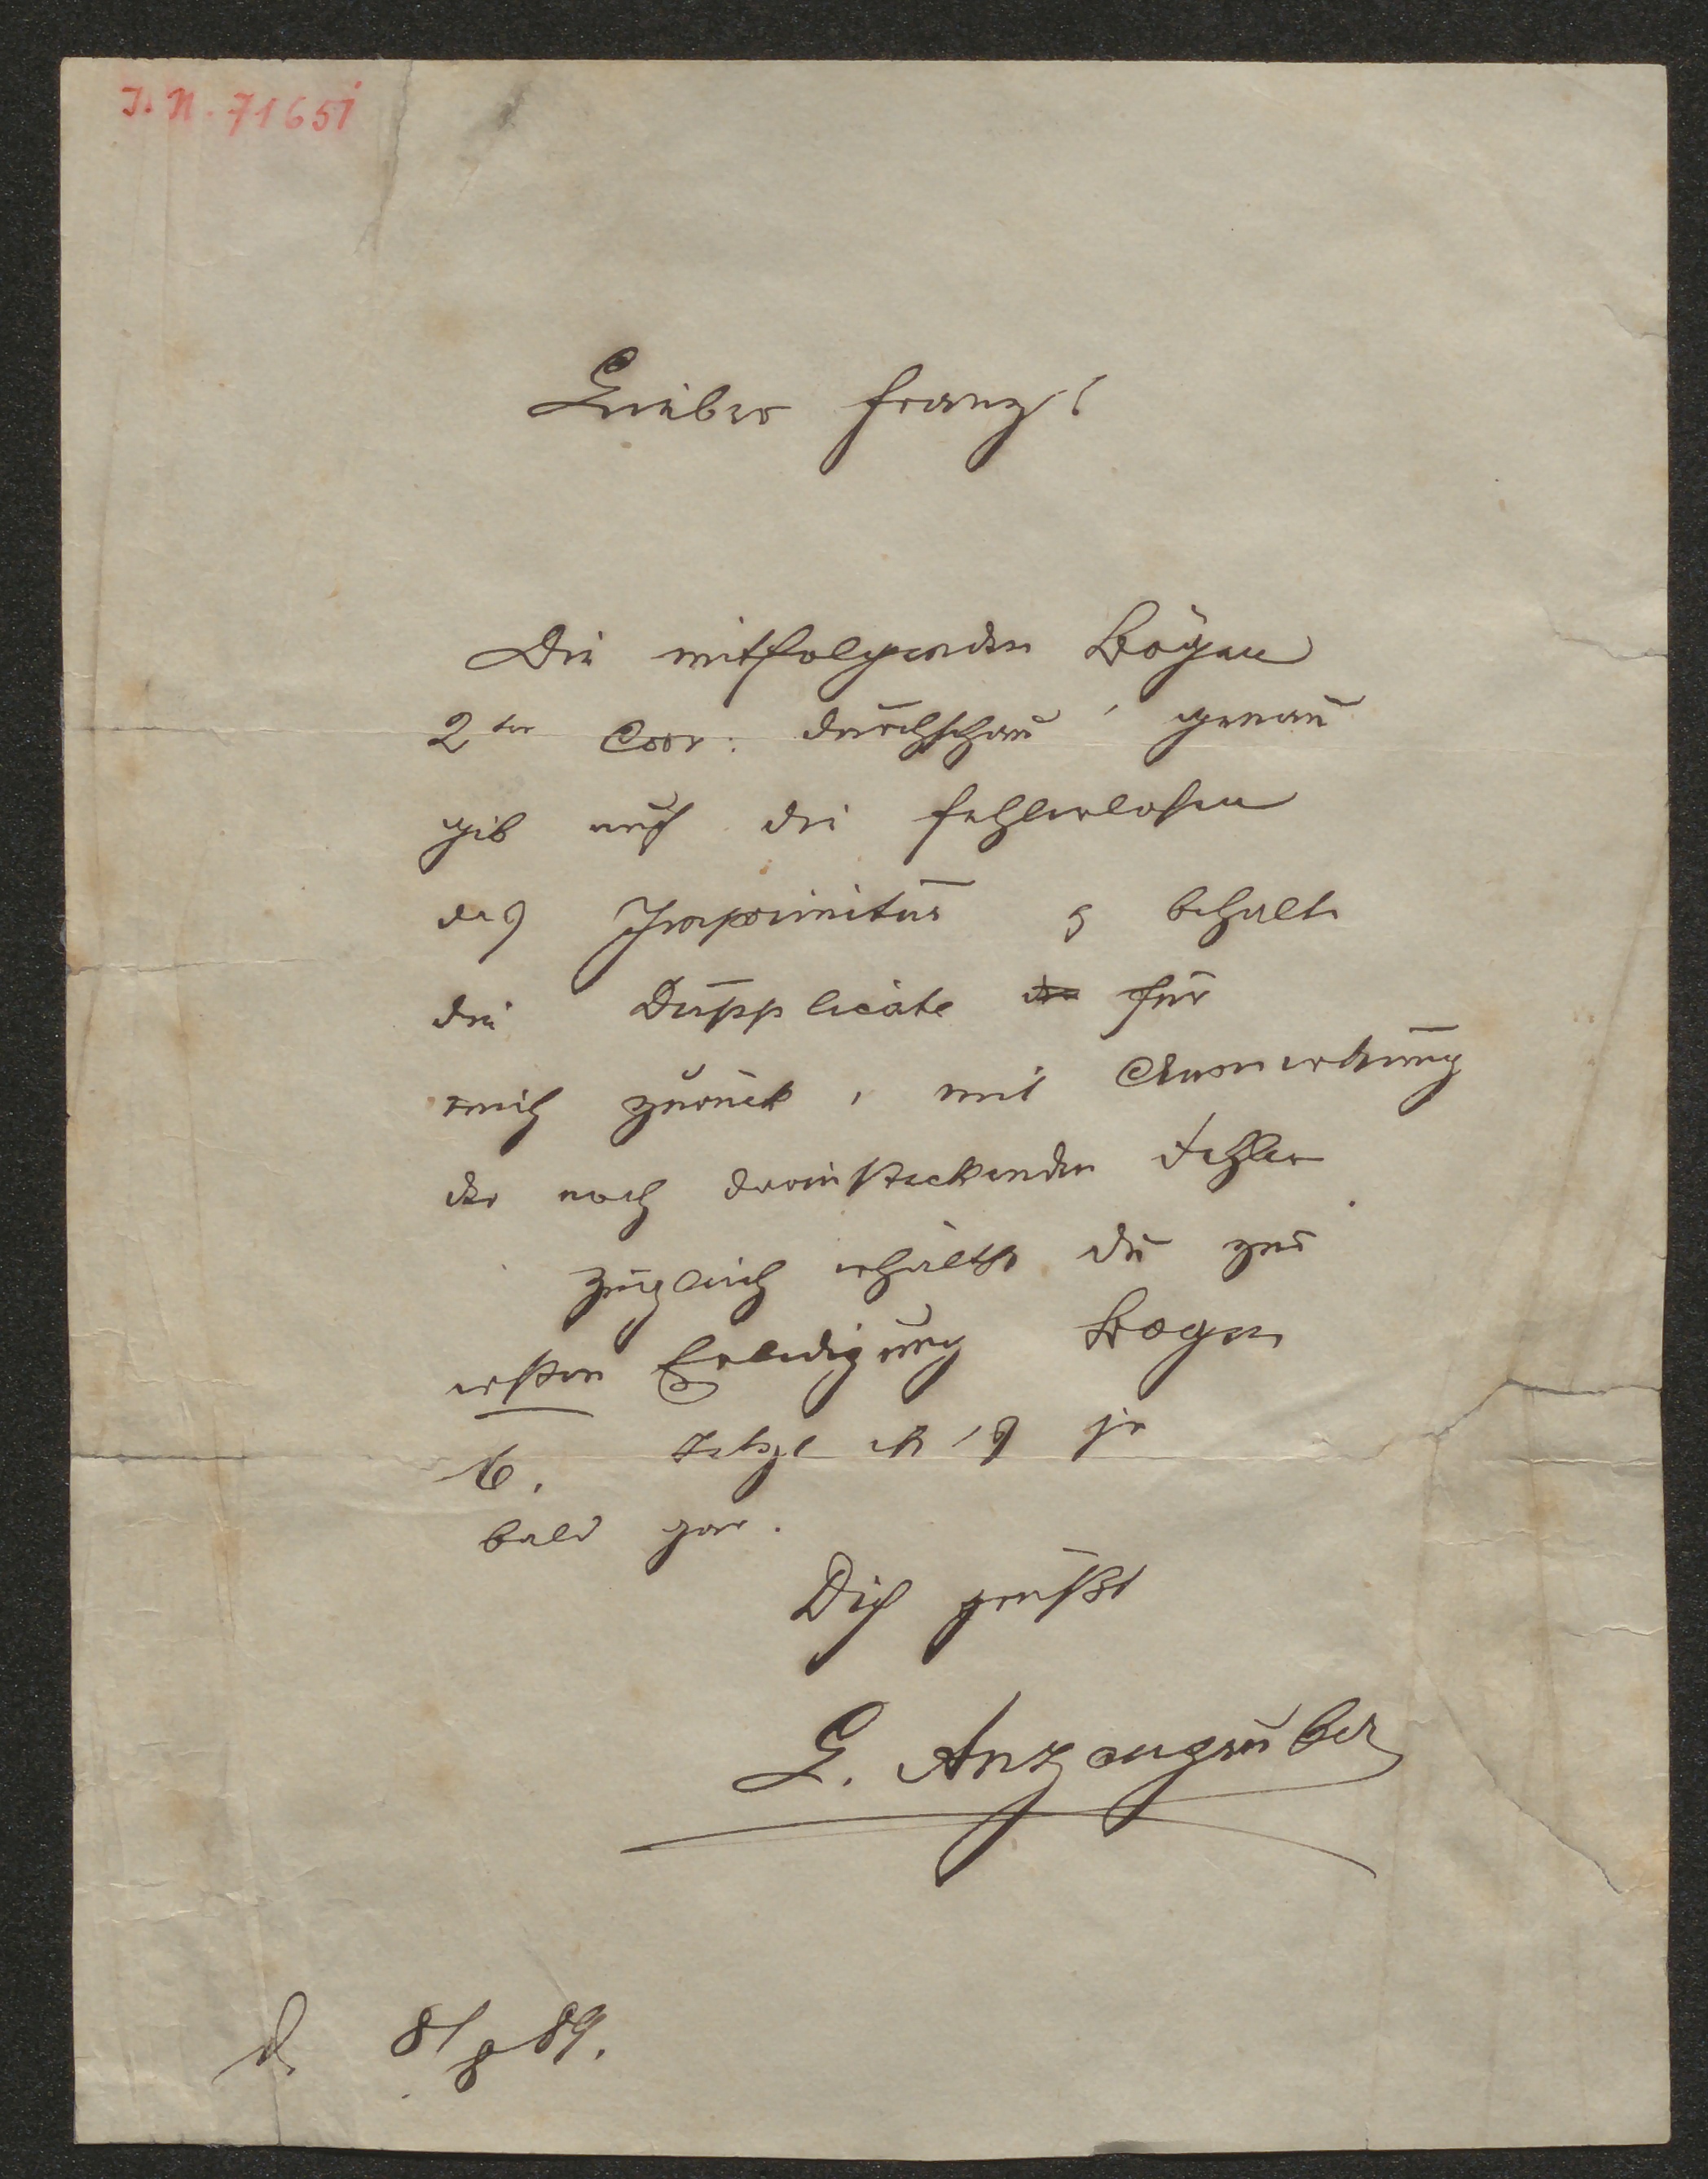 I. N. 71651
Lieber Franz!
Die mitfolgenden Bögen
2ter Corr: durchschau' genau
gib auf die fehlerlosen
das Imprimatur & behalte
die Dupplicate für
mich zurück, mit Anmerkung
der noch dreinsteckenden Fehler.
Zugleich erhältst du zur
ersten Erledigung Bogen
16. Jetzt ist's ja
bald gar.
Dich grüßt
L. Anzengruber
d. 8/8 89.